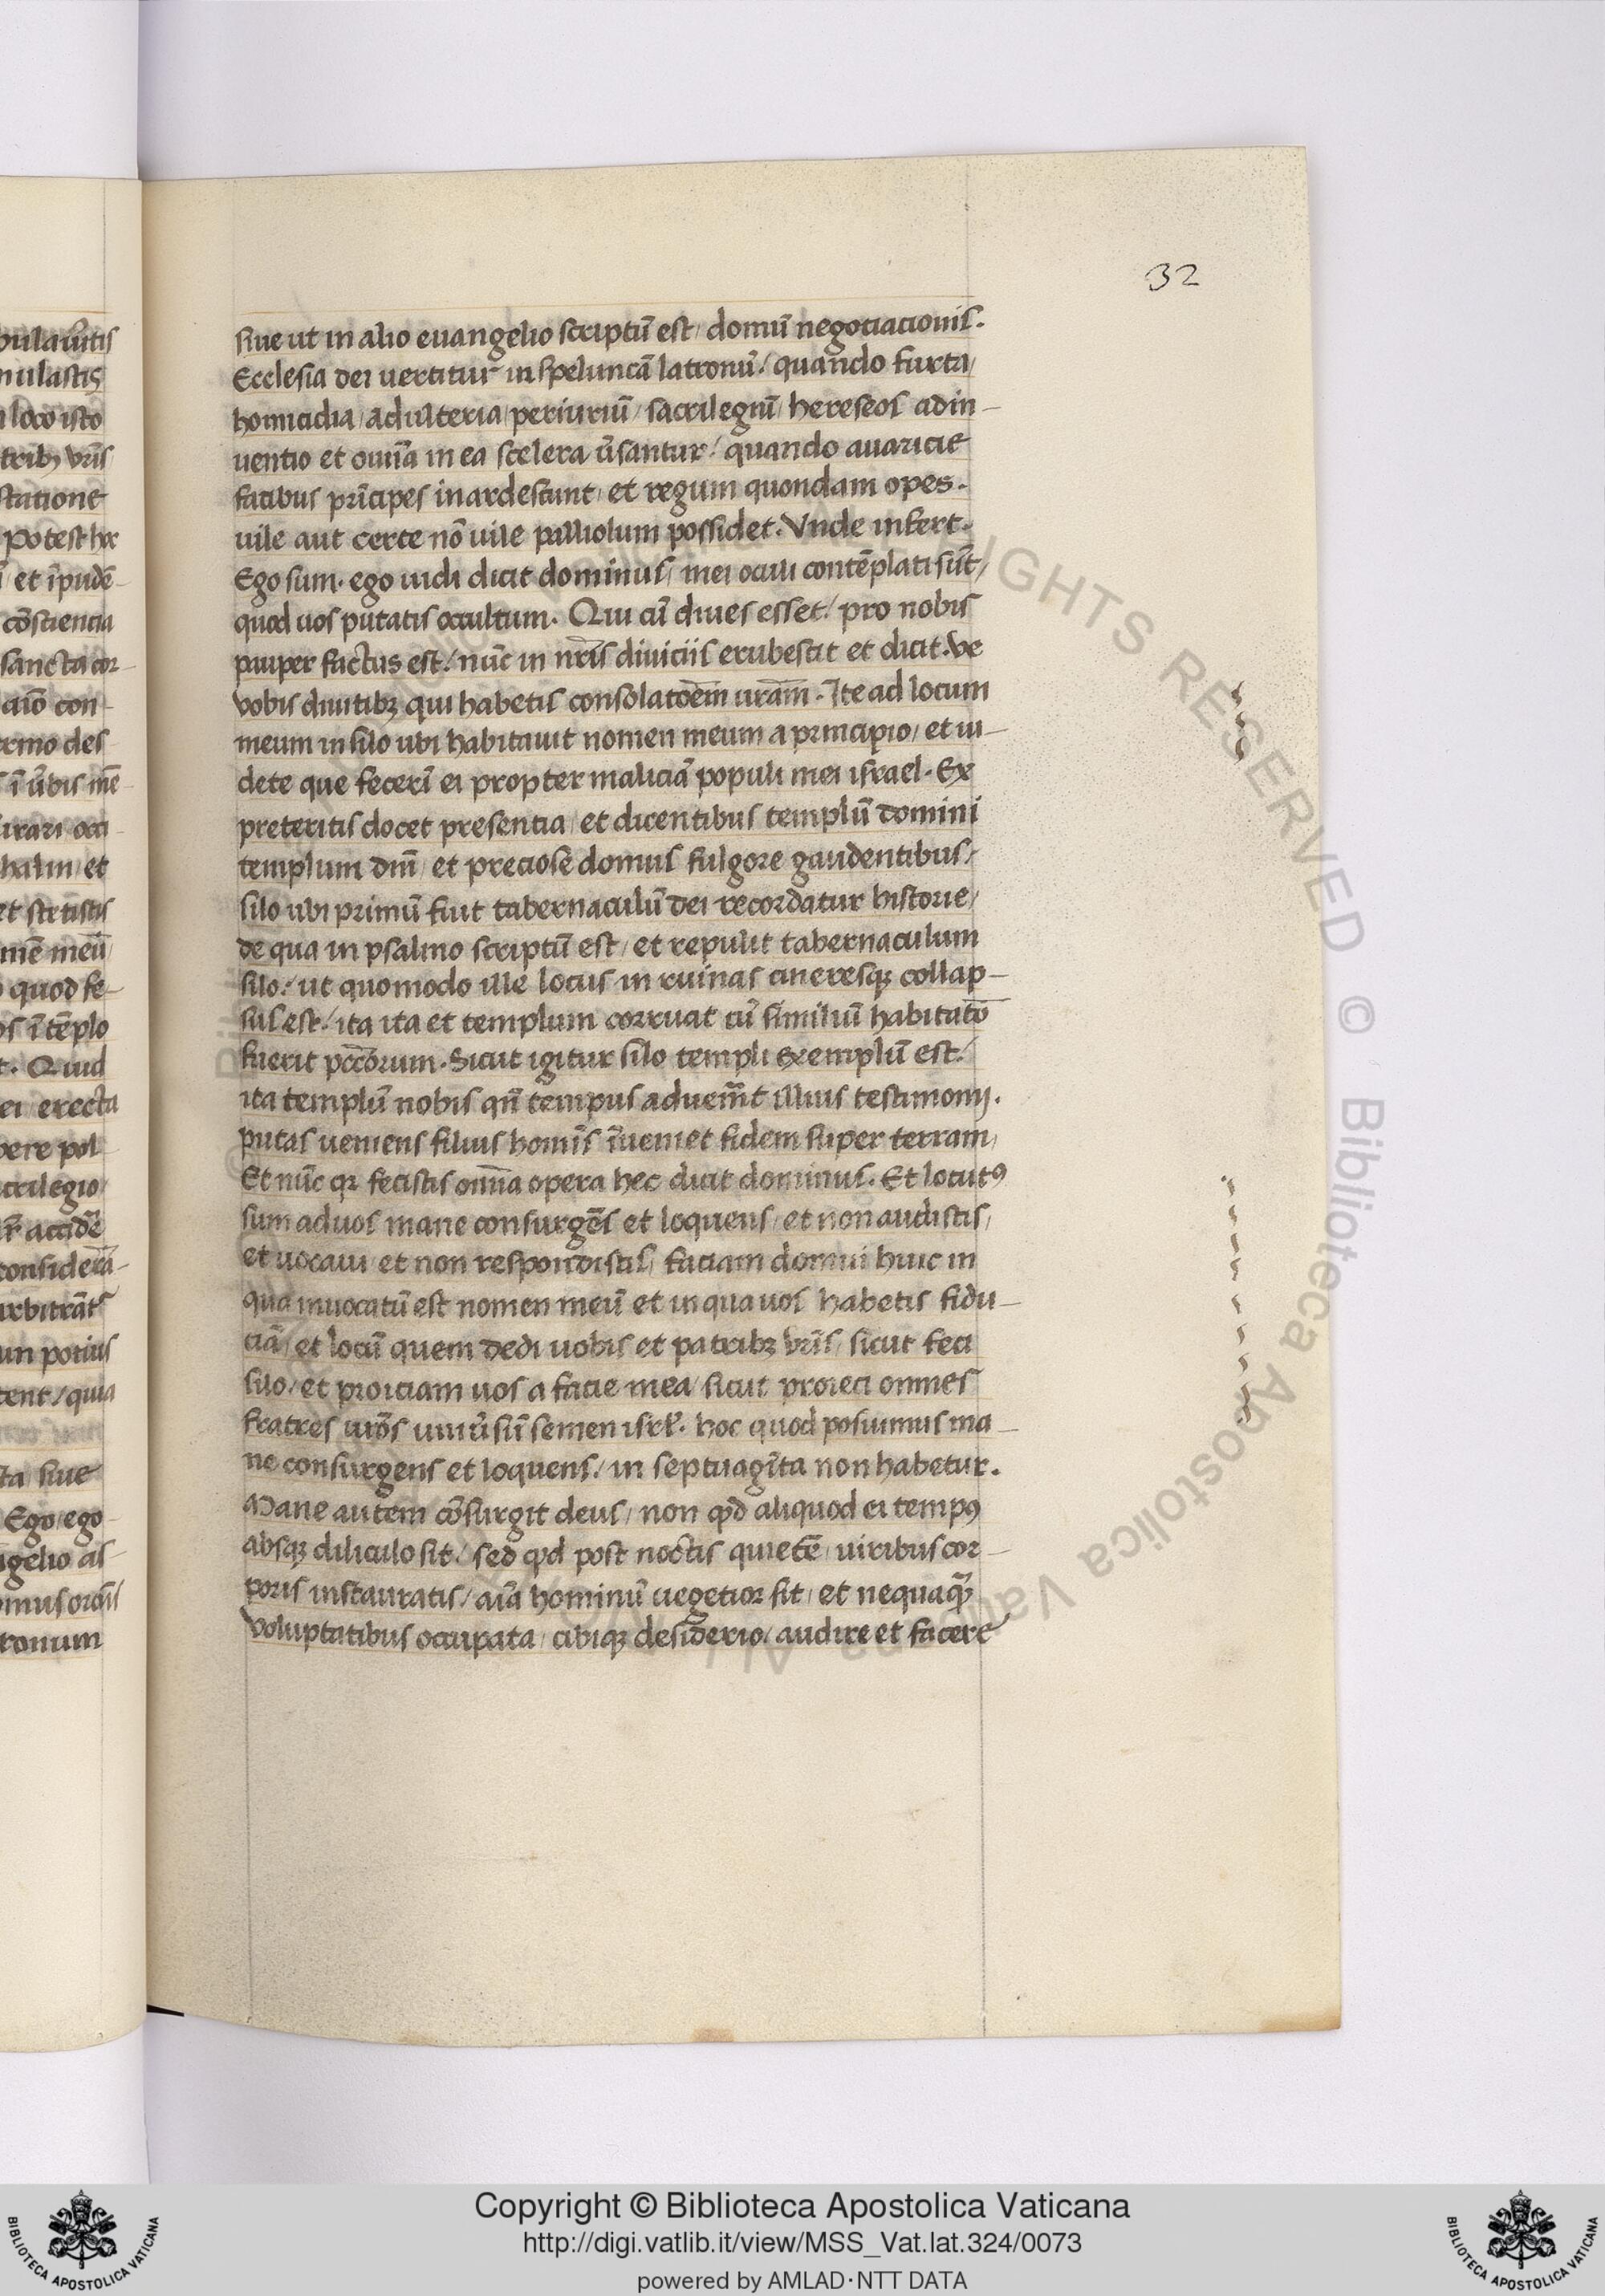 32
siue ut in alio euangelio scriptū est / domū negotiacionis.
Ecclesia dei uertitur in speluncā latronū / quando furta /
homicidia / adulteria / periuriū / sacrilegiū / hereseos adin-
uentio et om̄ia in ea scelera ūsantur / quando auaricie
facibus prīcipes inardescunt / et regum quondam opes.
uile aut certe nō uile palliolum possidet. Vnde infert.
Ego sum. ego uidi dicit dominus / mei oculi contēplati sūt /
quod uos putatis occultum. Qui cū diues esset / pro nobis
pauper factus est / nūc in nr̄is diuiciis erubescit et dicit. ve
vobis diuitibꝫ qui habetis consolatōēm ur̄am. Ite ad locum
meum in silo ubi habitauit nomen meum a principio / et ui-
dete que fecerī ei propter maliciā populi mei israel. Ex
preteritis docet presentia / et dicentibus templū domini
templum dn̄i / et preciose domus fulgore gaudentibus /
silo ubi primū fuit tabernaculū dei recordatur historie /
de qua in psalmo scriptū est / et repulit tabernaculum
silo / ut quomodo ille locus in ruinas cineresqꝫ collap-
sus est / ita ita et templum corruat cū similiū habitatō
fuerit pcc̄orum. Sicut igitur silo templi exemplū est /
ita templū nobis qn̄ tempus aduen̄it illius testimonij.
putas ueniens filius homīs īueniet fidem super terram /
Et nūc qꝛ fecistis om̄ia opera hec dicit dominus. Et locutꝰ
sum ad uos mane consurgēs et loquens / et non audistis /
et uocaui et non respondistis / faciam domui huic in
qua inuocatū est nomen meū et in qua uos habetis fidu-
ciā / et locū quem dedi uobis et patribꝫ vr̄is / sicut feci
silo / et proiciam uos a facie mea / sicut proieci omnes
fratres ur̄os uniūsū semen isrl̄. hoc quod posuimus ma-
ne consurgens et loquens / in septuagīta non habetur.
Mane autem cōsurgit deus / non qd̄ aliquod ei tempꝰ
absqꝫ diliculo sit / sed qd̄ post noctis quietē / uiribus cor-
poris instauratis / aīa hominū uegetior sit / et nequaqꝫ̄
voluptatibus occupata / cibiqꝫ desiderio / audire et facere
Copyright © Biblioteca Apostolica Vaticana
http://digi.vatlib.it/view/MSS_Vat.lat.324/0073
powered by AMLAD·NTT DATA